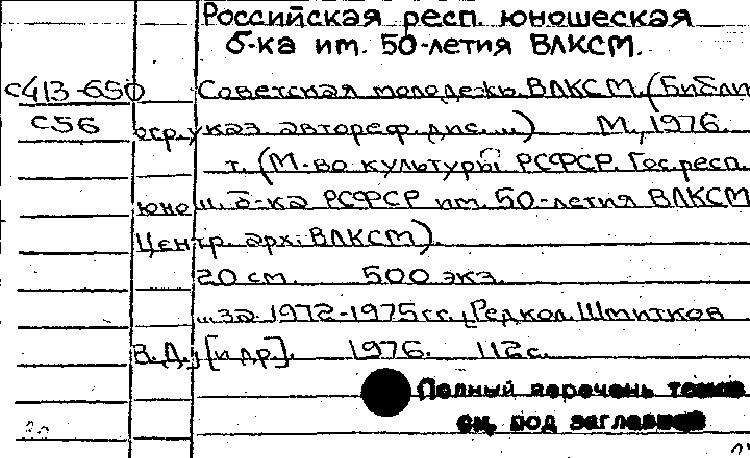 Российская респ. юношеская
б-ка им. 50-летия ВЛКСМ.
С413-650 Советская молодежь. ВЛКСМ. (Библи
С56 огр. указ. автореф. дис. ...) М., 1976.
т. (М-во культуры РСФСР. Гос. респ.
юнош. б-ка РСФСР им. 50-летия ВЛКСМ
Центр. арх. ВЛКСМ).
20 см. 500 экз.
...за 1972-1975гг. Редкол. Шмитков
В.Д., [и др]. 1976. 112с.
Полный перечень томов
см. под заглавием